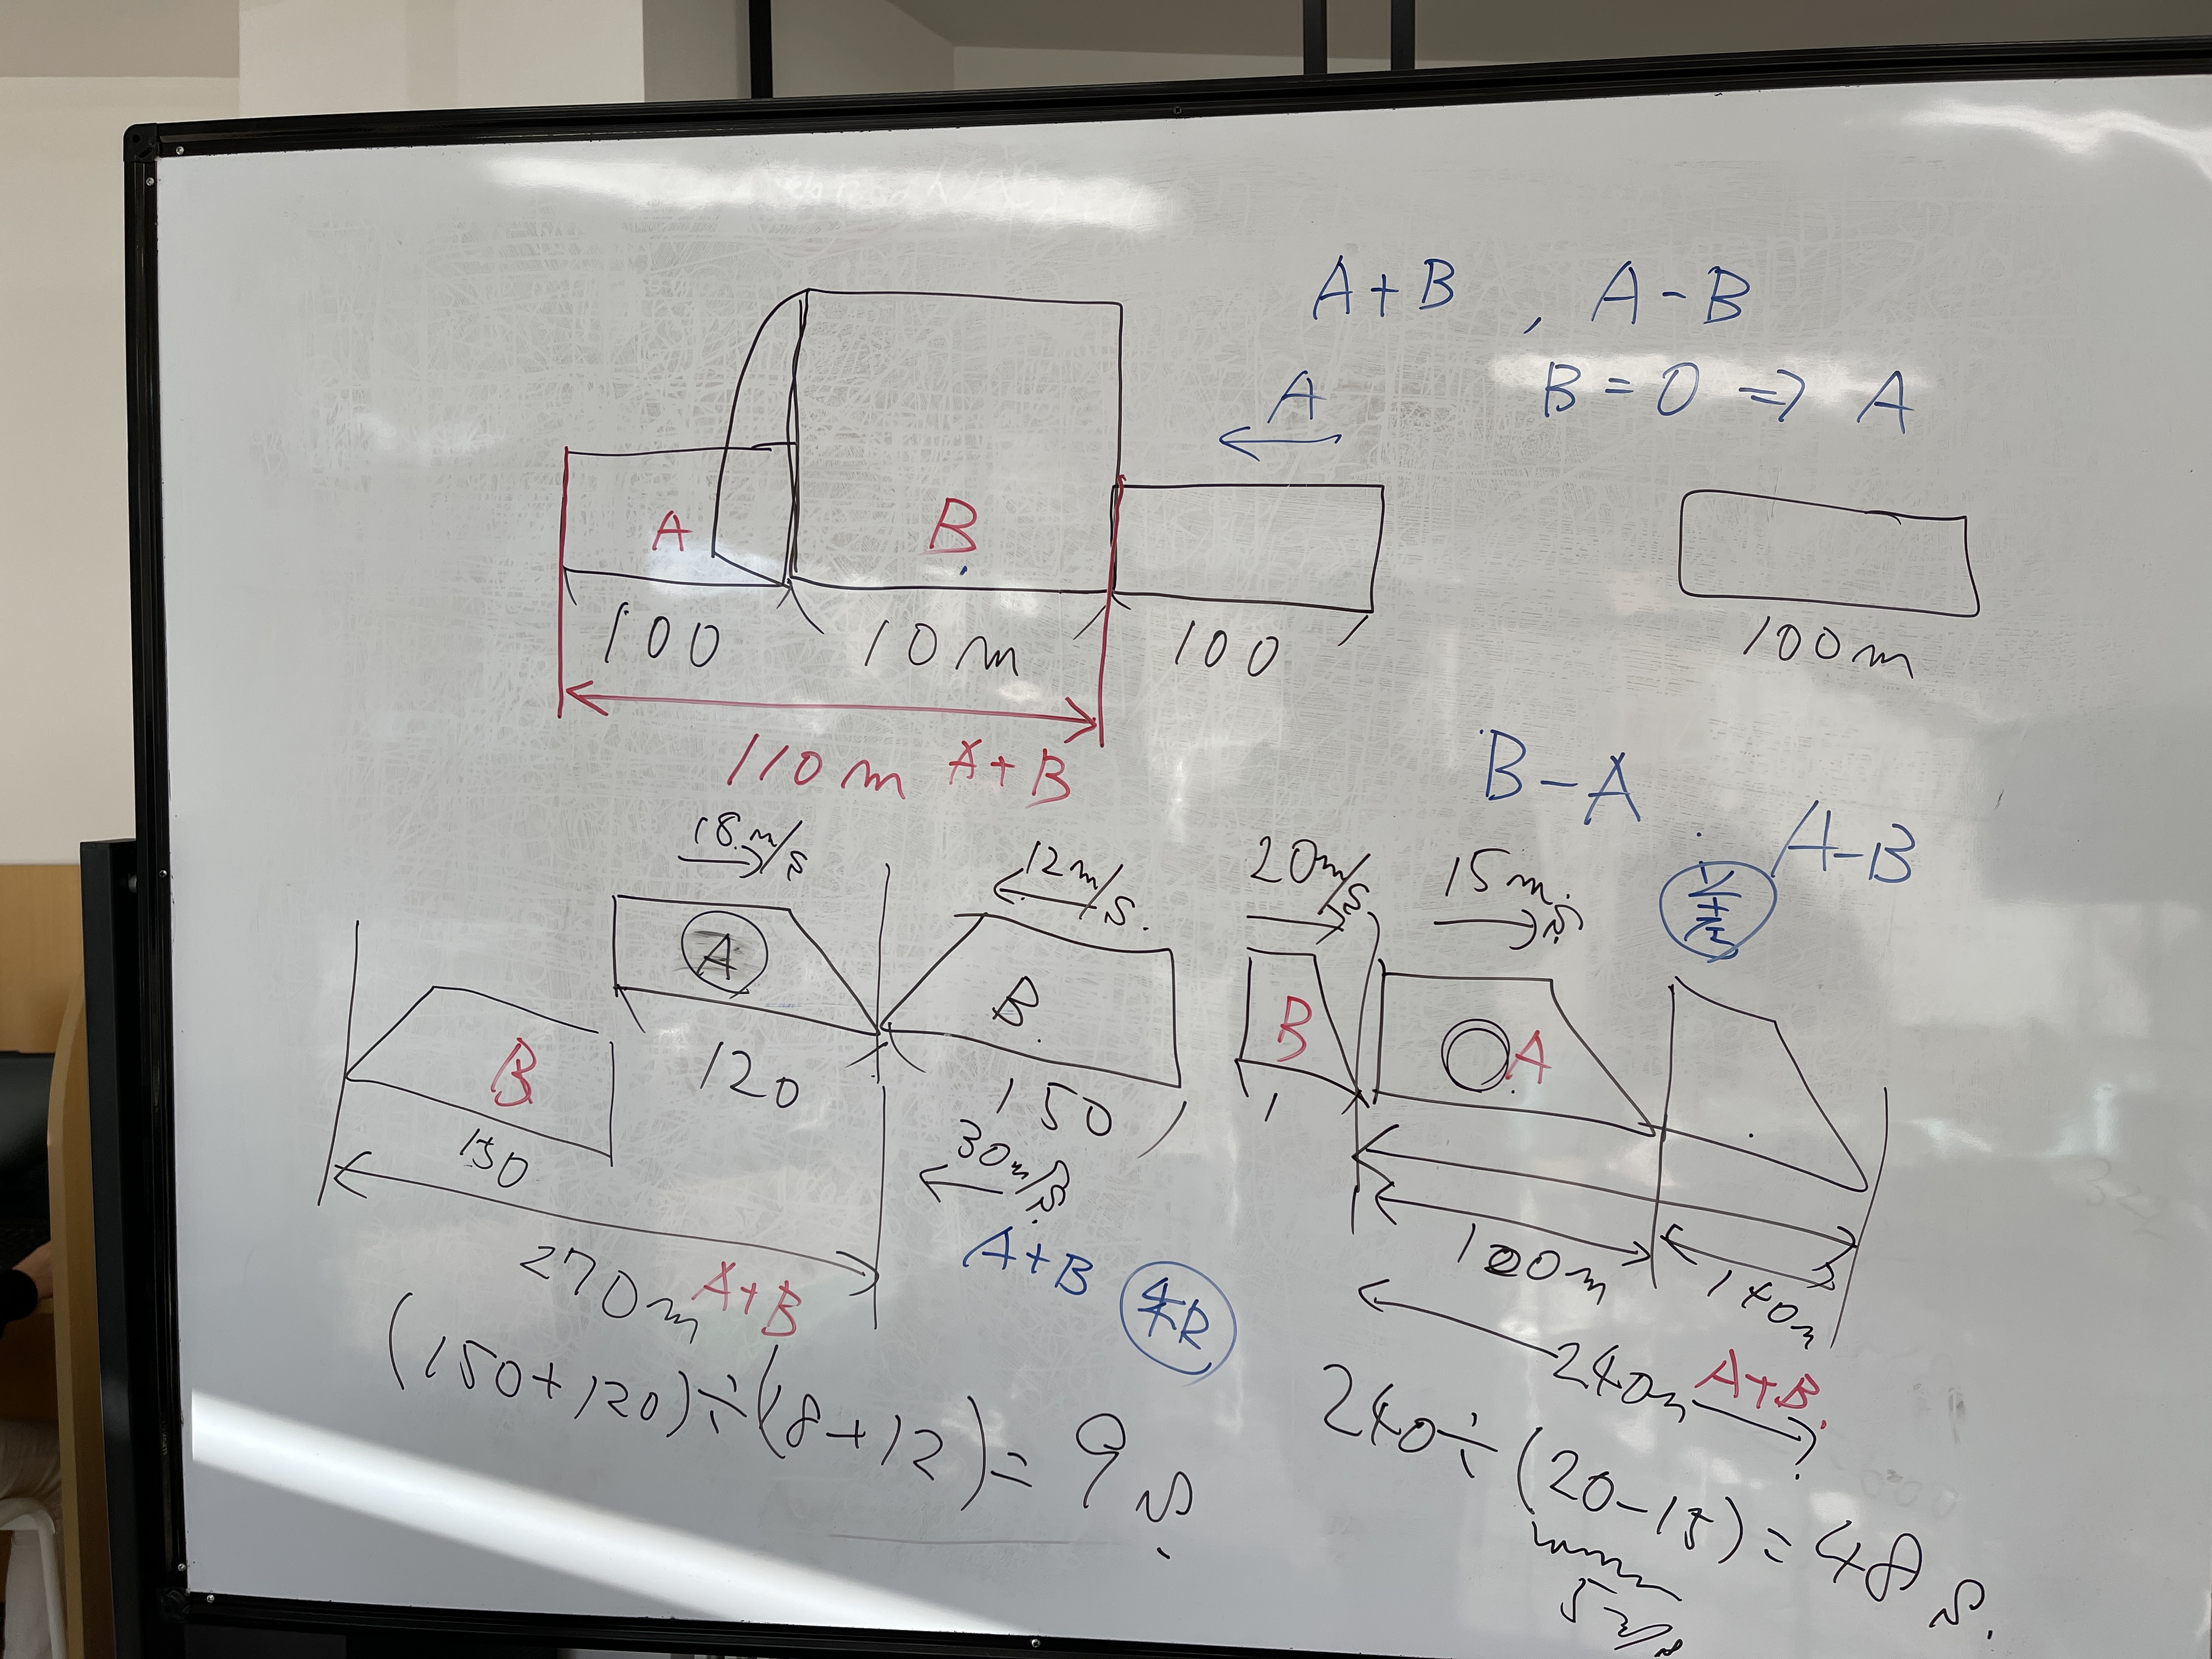 A+B , A-B
B=0 ⇒ A
A
A
B
100
10m
100
100m
110m A+B
B-A
A-B
18m/s
12m/s.
20m/s
15m/s
A
B.
B
A
B
120
150
150
30m/s
A+B
100m
140m
270m A+B
240m A+B
(150+120)÷(18+12)=9s.
240÷(20-15)=48s.
5m/s